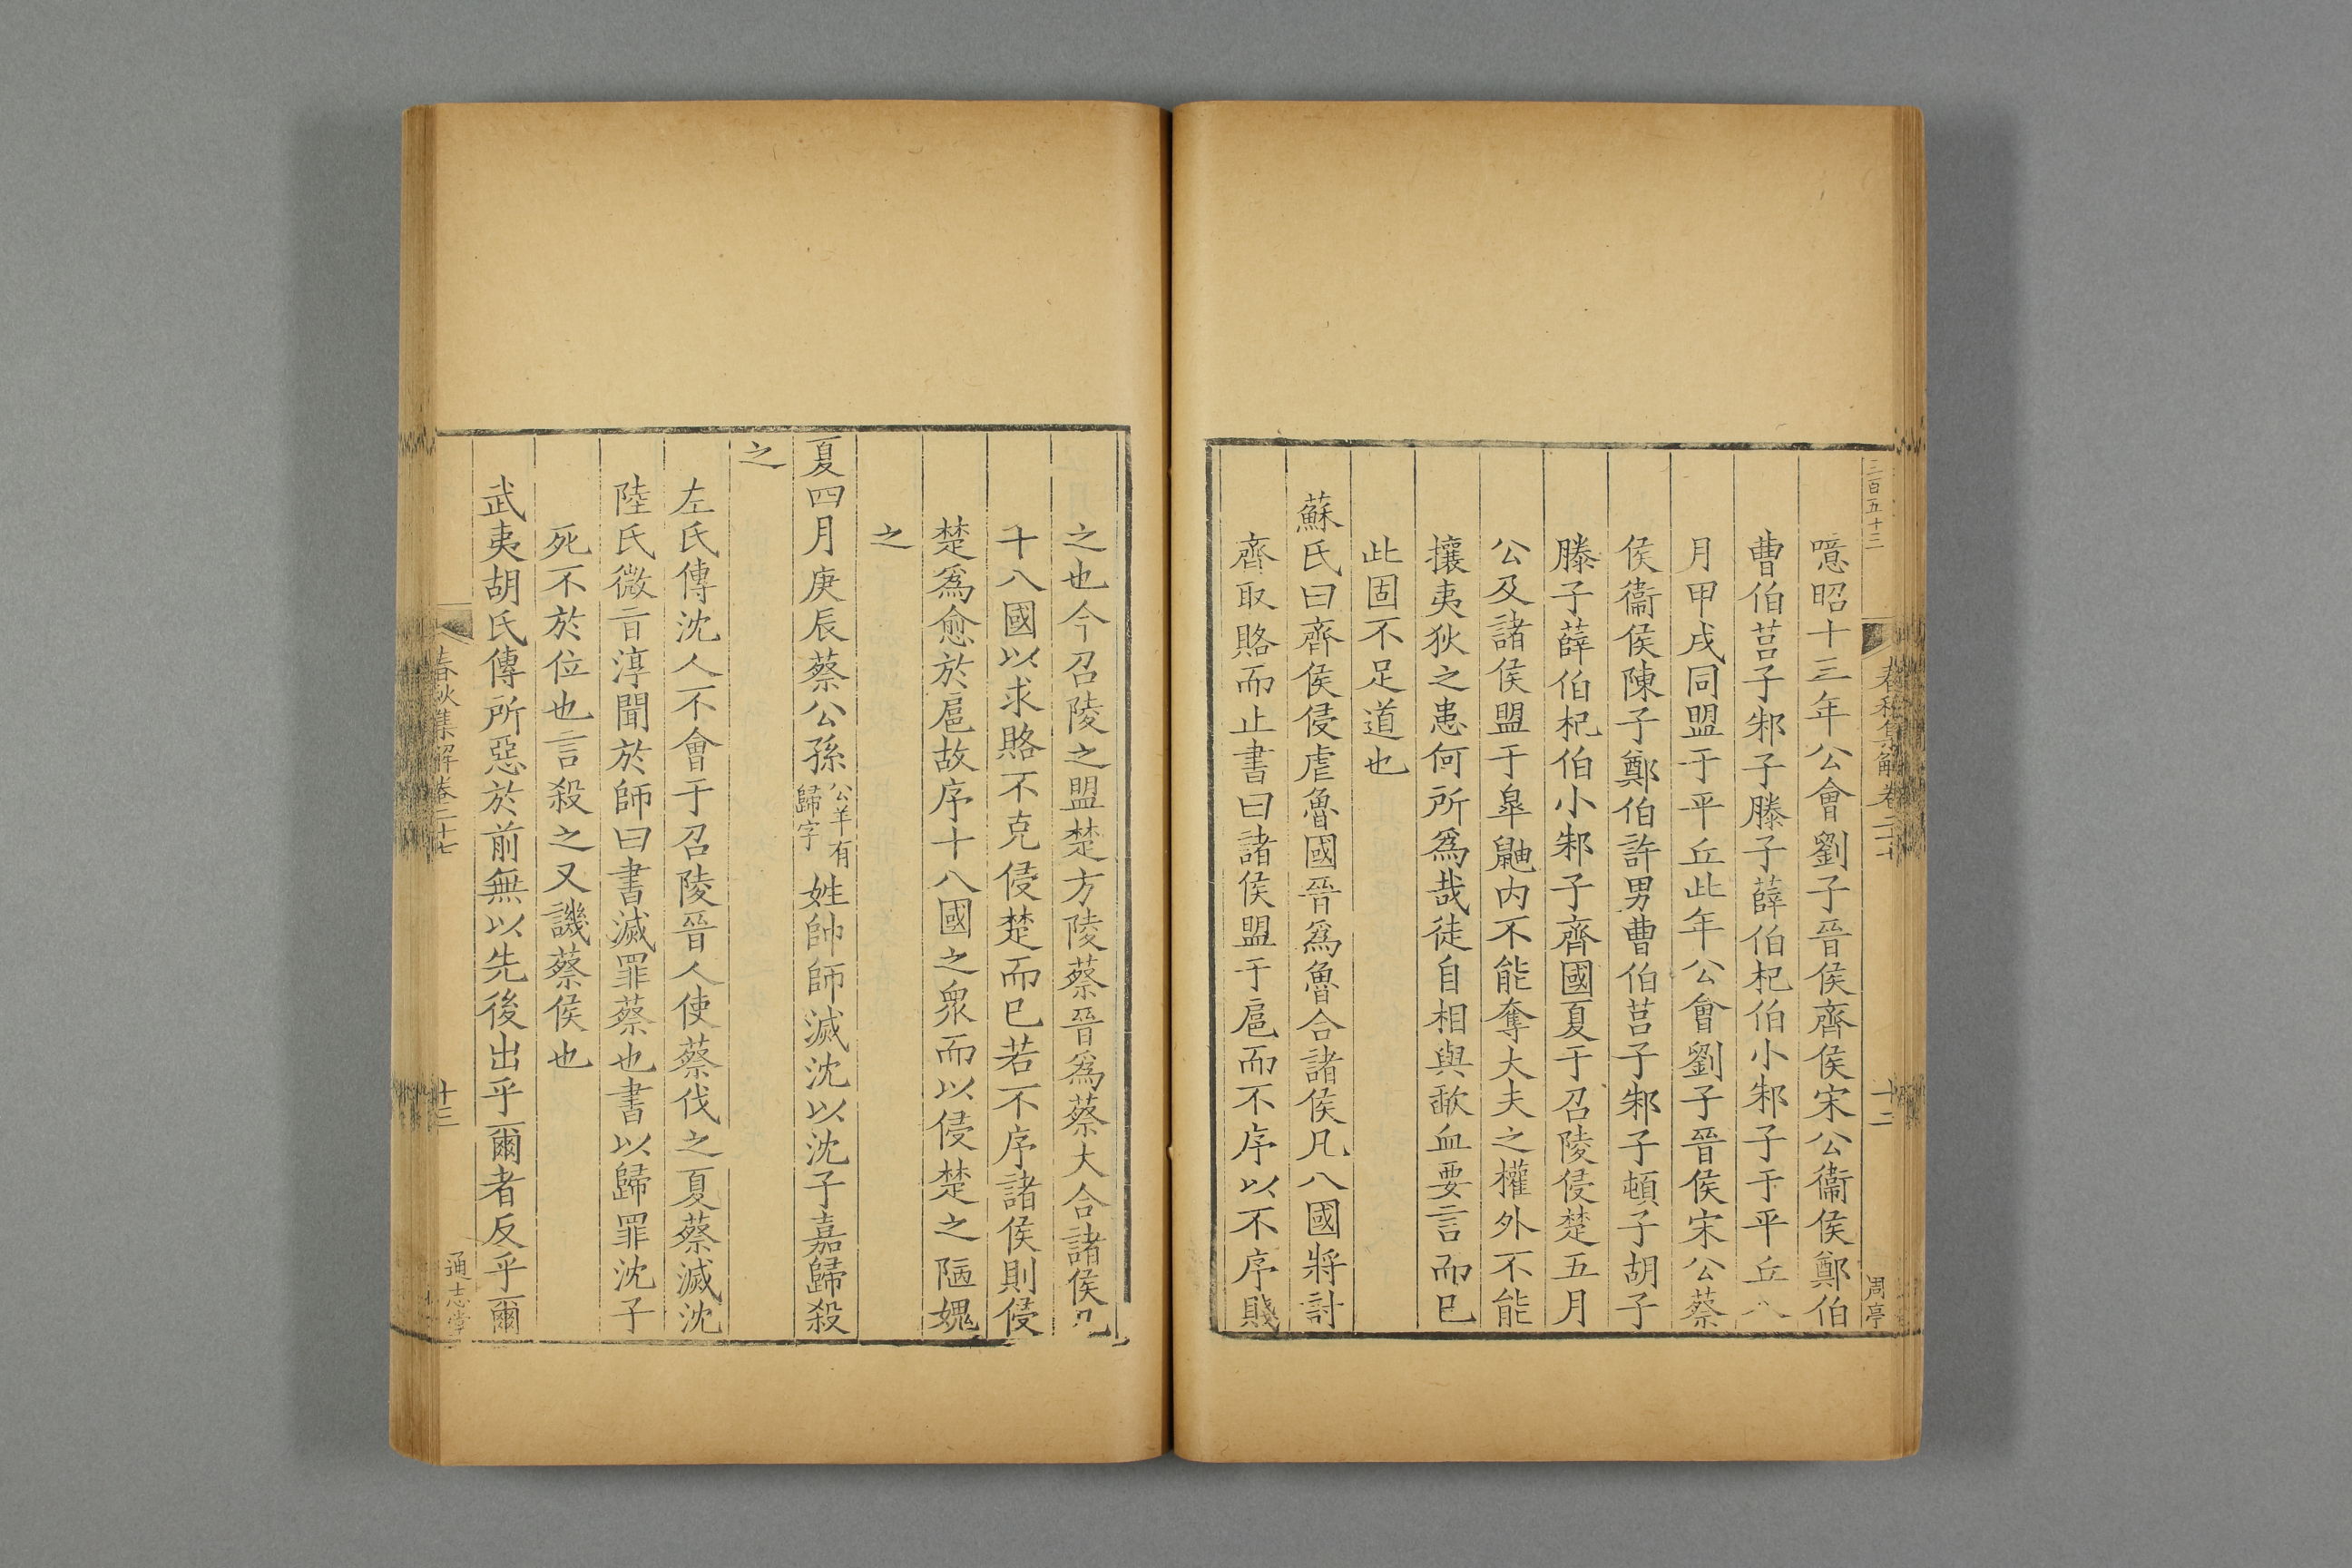 三百五十三
春秋集解卷二十七
十二
周亭
噫昭十三年公會劉子晉侯齊侯宋公衞侯鄭伯
曹伯莒子邾子滕子薛伯杞伯小邾子于平丘八
月甲戌同盟于平丘此年公會劉子晉侯宋公蔡
侯衞侯陳子鄭伯許男曹伯莒子邾子頓子胡子
滕子薛伯杞伯小邾子齊國夏于召陵侵楚五月
公及諸侯盟于皐鼬内不能奪大夫之權外不能
攘夷狄之患何所爲哉徒自相與歃血要言而巳
此固不足道也
蘇氏曰齊侯侵虐魯國晉爲魯合諸侯凡八國將討
齊取賂而止書曰諸侯盟于扈而不序以不序賤
之也今召陵之盟楚方陵蔡晉爲蔡大合諸侯凡
十八國以求賂不克侵楚而巳若不序諸侯則侵
楚爲愈於扈故序十八國之衆而以侵楚之陋媿
之
夏四月庚辰蔡公孫公羊有歸字姓帥師滅沈以沈子嘉歸殺
之
左氏傳沈人不會于召陵晉人使蔡伐之夏蔡滅沈
陸氏微㫖淳聞於師曰書滅罪蔡也書以歸罪沈子
死不於位也言殺之又譏蔡侯也
武夷胡氏傳所惡於前無以先後出乎爾者反乎爾
春秋集解卷二十七
十三
通志堂